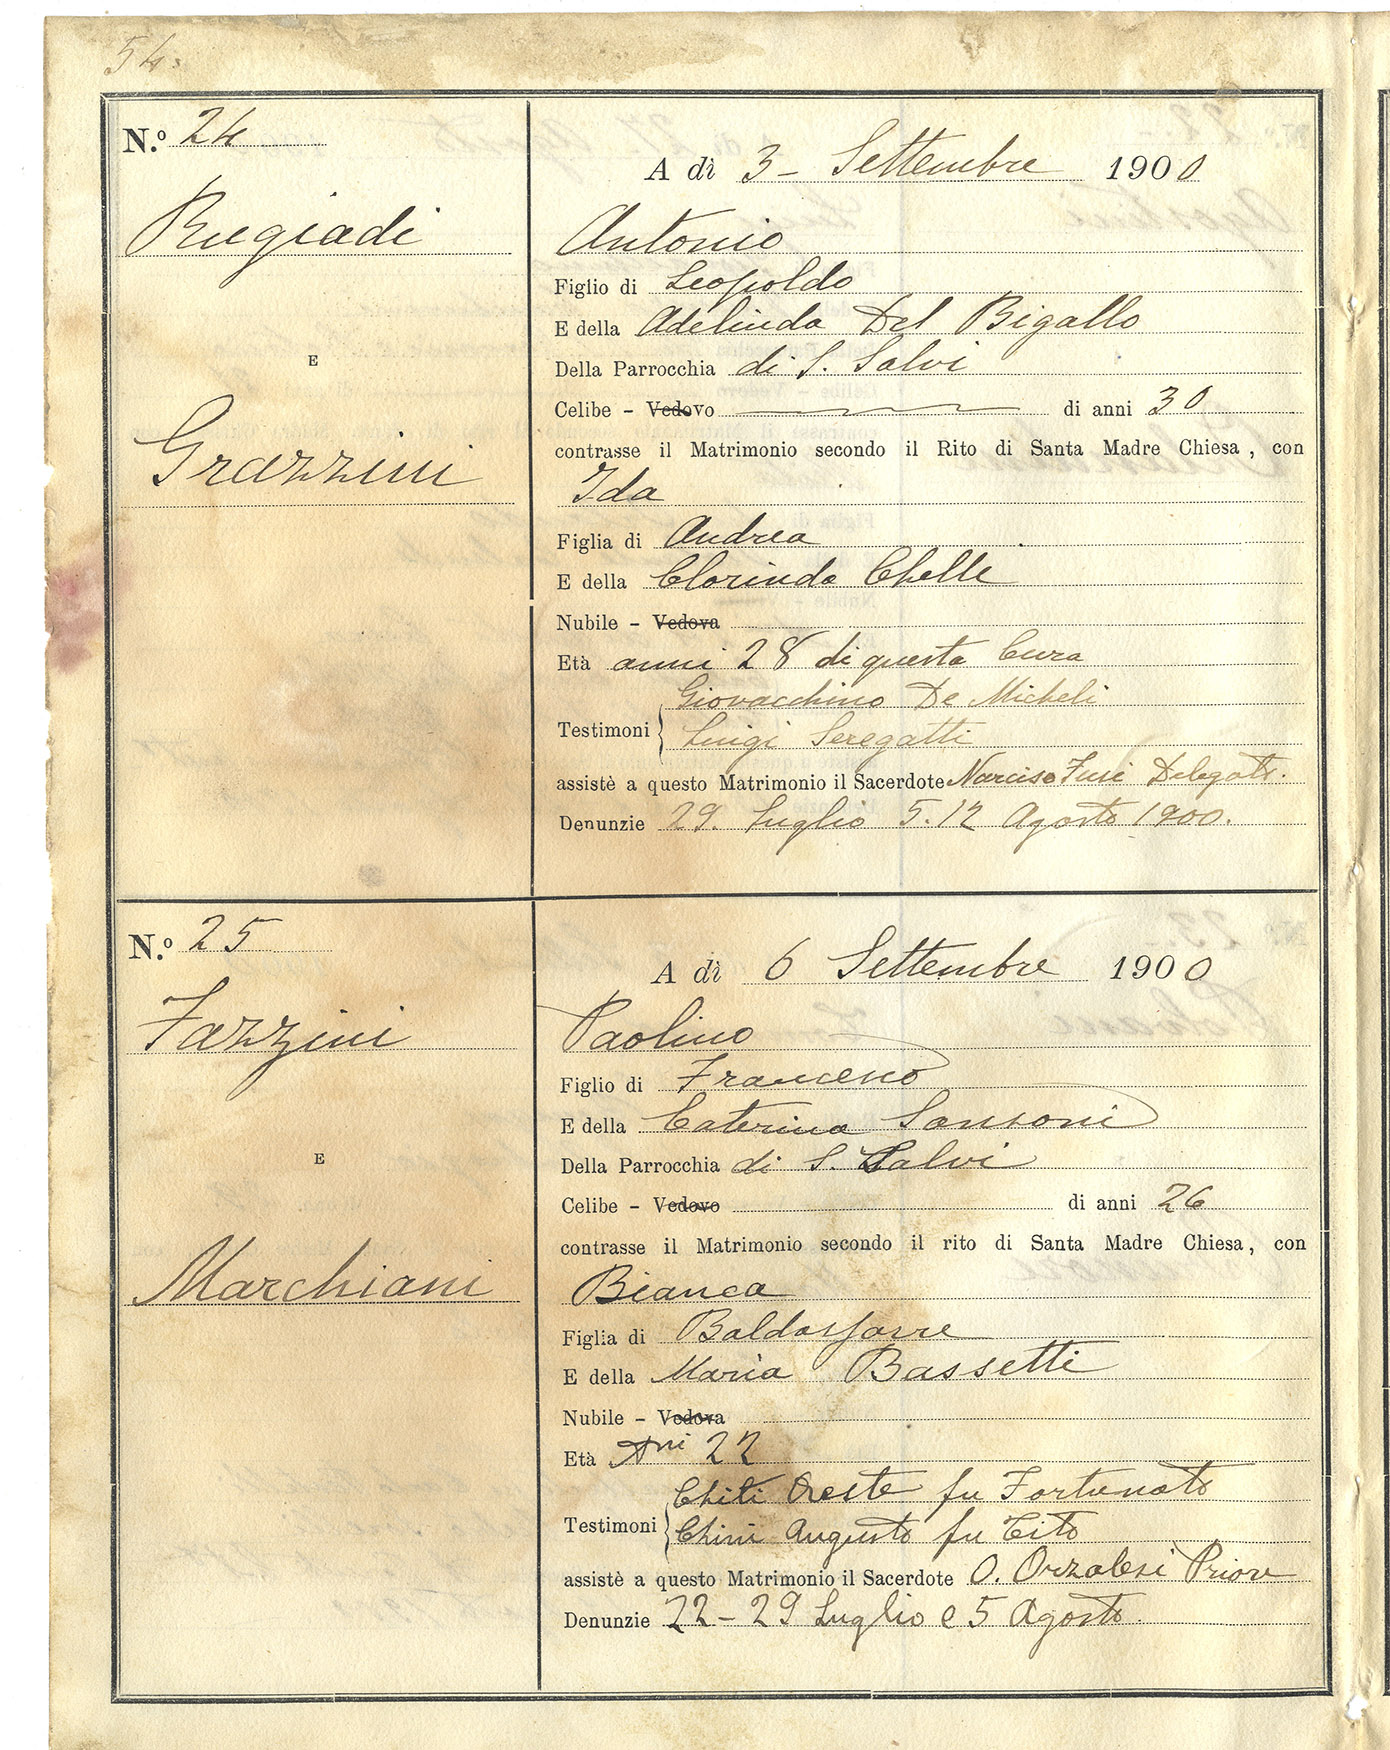 54.
N.º 24
A dì 3 - Settembre 1900
Rugiadi
Antonio
Figlio di Leopoldo
E della Adelinda Del Bigallo
E
Della Parrocchia di S. Salvi
Celibe - Vedovo di anni 30
contrasse il Matrimonio secondo il Rito di Santa Madre Chiesa, con
Grazzini
Ida
Figlia di Andrea
E della Clorinda Chelli
Nubile - Vedova
Età anni 28 di questa Cura
Giovacchino De Micheli
Testimoni
Luigi Seregatti
assistè a questo Matrimonio il Sacerdote Narciso Fusi Delegato.
Denunzie 29. Luglio 5.12 Agosto 1900.
N.º 25
A dì 6 Settembre 1900
Fazzini
Paolino
Figlio di Francesco
E della Caterina Sansoni
E
Della Parrocchia di S. Salvi
Celibe - Vedovo di anni 26
contrasse il Matrimonio secondo il rito di Santa Madre Chiesa, con
Marchiani
Bianca
Figlia di Baldassarre
E della Maria Bassetti
Nubile - Vedova
Età Ani 22
Chiti Oreste fu Fortunato
Testimoni
Chini Augusto fu Tito
assistè a questo Matrimonio il Sacerdote O. Orzalesi Priore
Denunzie 22 - 29 Luglio e 5 Agosto.